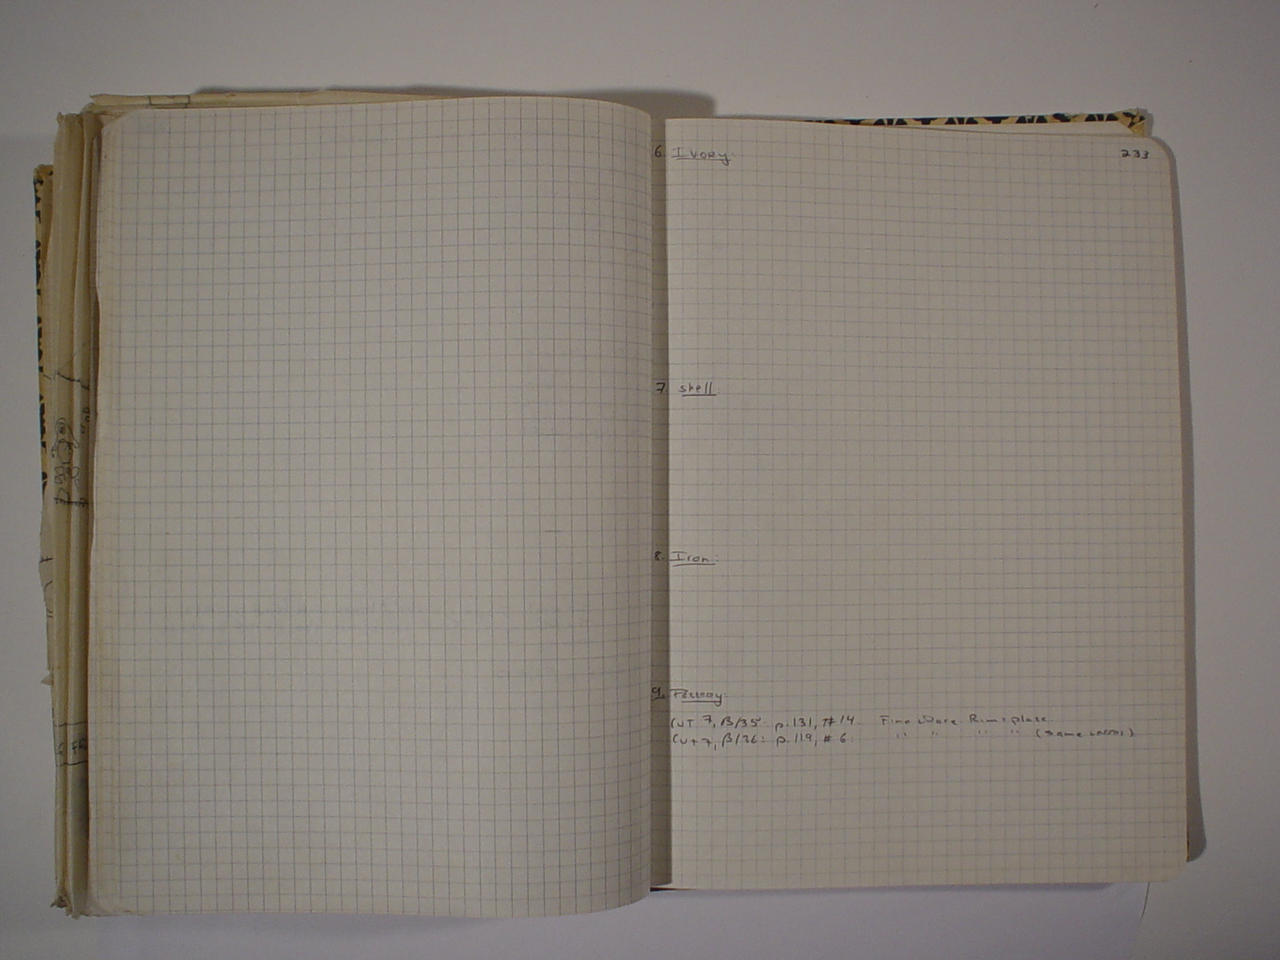 233
6. Ivory:
7. shell
8. Iron:
9. Pottery:
Cut 7, β/35: p. 131, #14. Fine Ware Rim & plate
Cut 7, β/36: p. 119, #6. " " " " (same